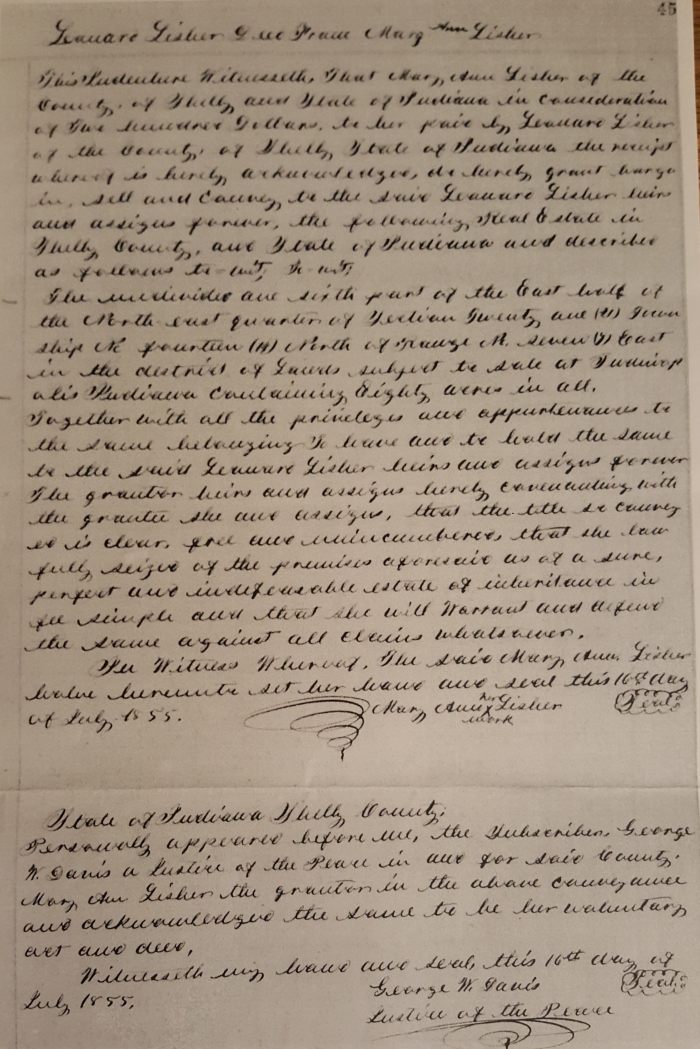 45
Leonard Lisher Deed From Mary Ann Lisher
This Indenture Witnesseth, That Mary Ann Lisher of the
County, of Shelby and State of Indiana in Consideration
of Two hundred Dollars, to her paid by Leonard Lisher
of the County, of Shelby State of Indiana the receipt
whereof is hereby acknowledged, do hereby grant barga
in, sell and Convey, to the said Leonard Lisher heirs
and assigns forever, the following, Real Estate in
Shelby County, and State of Indiana and described
as follows to-wit, to-wit,
The undivided one sixth part of the East half of
the North east quarter of Section Twenty one (21) Town
ship No fourteen (14) North of Range No. Seven (7) East
in the district of Lands subject to sale at Indianap
olis Indiana Containing Eighty acres in all.
Together with all the privileges and appurtenances to
the same belonging To have and to hold the same
to the said Leonard Lisher heirs and assigns forever
The grantor heirs and assigns hereby covenanting with
the grantee she and assigns, that the title so convey
ed is clear, free and unincumbered, that she law
fully seized of the premises aforesaid as of a sure,
perfect and indefeasable estate of inheritance in
fee simple and that she will Warrant and defend
the same against all claims whatsoever.
In Witness Whereof, The said Mary, Ann Lisher
have hereunto set her hand and seal this 16th day
of July 1855.
Mary Ann her X mark Lisher Seal
State of Indiana Shelby County,
Personally appeared before me, the Subscriber, George
W. Davis a Justice of the Peace in and for said County.
Mary Ann Lisher the grantor in the above conveyance
and acknowledged the same to be her voluntary
act and deed,
Witnesseth my hand and seal, this 16th day of
July 1855.
George W. Davis Seal
Justice of the Peace